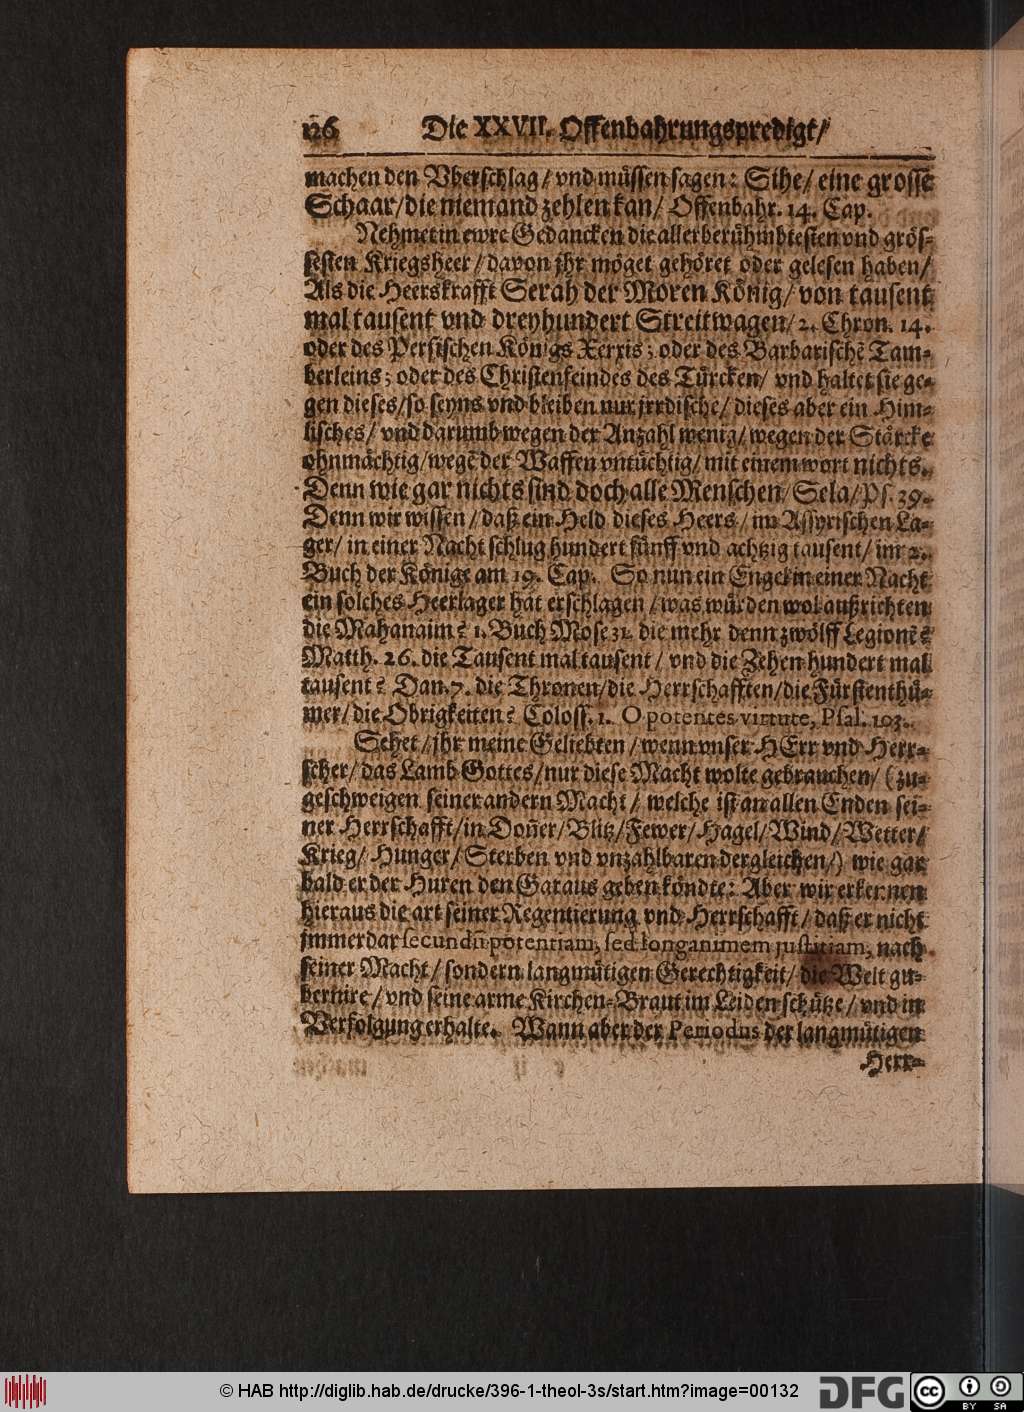 126 Die XXVII. Offenbahrungspredigt/
machen den Vberschlag/ vnd müssen sagen: Sihe/ eine grosse
Schaar/ die niemand zehlen kan/ Offenbahr. 14. Cap.
Nehmet in ewre Gedancken die allerberühmbtesten vnd grös-
sesten Kriegsheer/ davon jhr möget gehöret oder gelesen haben/
Als die Heerskrafft Serah der Moren König/ von tausent
mal tausent vnd dreyhundert Streitwagen/ 2. Chron. 14.
oder des Persischen Königs Xerxis; oder des Barbarischẽ Tam-
berleins; oder des Christenfeindes des Türcken/ vnd haltet sie ge-
gen dieses/ so seyns vnd bleiben nur jrrdische/ dieses aber ein Him-
lisches/ vnd darumb wegen der Anzahl wenig/ wegen der Stärcke
ohnmächtig/ wegẽ der Waffen vntüchtig/ mit einem wort nichts.
Denn wie gar nichts sind doch alle Menschen/ Sela/ Ps. 39.
Denn wir wissen/ daß ein Held dieses Heers/ im Assyrischen La-
ger/ in einer Nacht schlug hundert fünff vnd achtzig tausent/ im 2.
Buch der Könige am 19. Cap. So nun ein Engel in einer Nacht
ein solches Heerlager hat erschlagen/ was würden wol außrichten
die Mahanaim? 1. Buch Mose 31. die mehr denn zwölff Legionẽ?
Matth. 26. die Tausent mal tausent/ vnd die Zehen hundert mal
tausent? Dan. 7. die Thronen/ die Herrschafften/ die Fürstenthü-
mer/ die Obrigkeiten? Coloss. 1. O potentes virtute, Psal. 103.
Sehet/ jhr meine Geliebten/ wenn vnser HErr vnd Herr-
scher/ das Lamb Gottes/ nur diese Macht wolte gebrauchen/ (zu-
geschweigen seiner andern Macht/ welche ist an allen Enden sei-
ner Herrschafft/ in Doñer/ Blitz/ Fewer/ Hagel/ Wind/ Wetter/
Krieg/ Hunger/ Sterben vnd vnzahlbaren dergleichen/) wie gar
bald er der Huren den Garaus geben köndte: Aber wir erkennen
hieraus die art seiner Regentierung vnd Herrschafft/ daß er nicht
jmmerdar secundũ potentiam, sed longanimem justitiam, nach
seiner Macht/ sondern langmütigen Gerechtigkeit/ die Welt gu-
bernire/ vnd seine arme Kirchen-Braut im Leiden schütze/ vnd in
Verfolgung erhalte. Wann aber der Periodus der langmütigen
Herr-
© HAB http://diglib.hab.de/drucke/396-1-theol-3s/start.htm?image=00132
DFG
cc BY SA